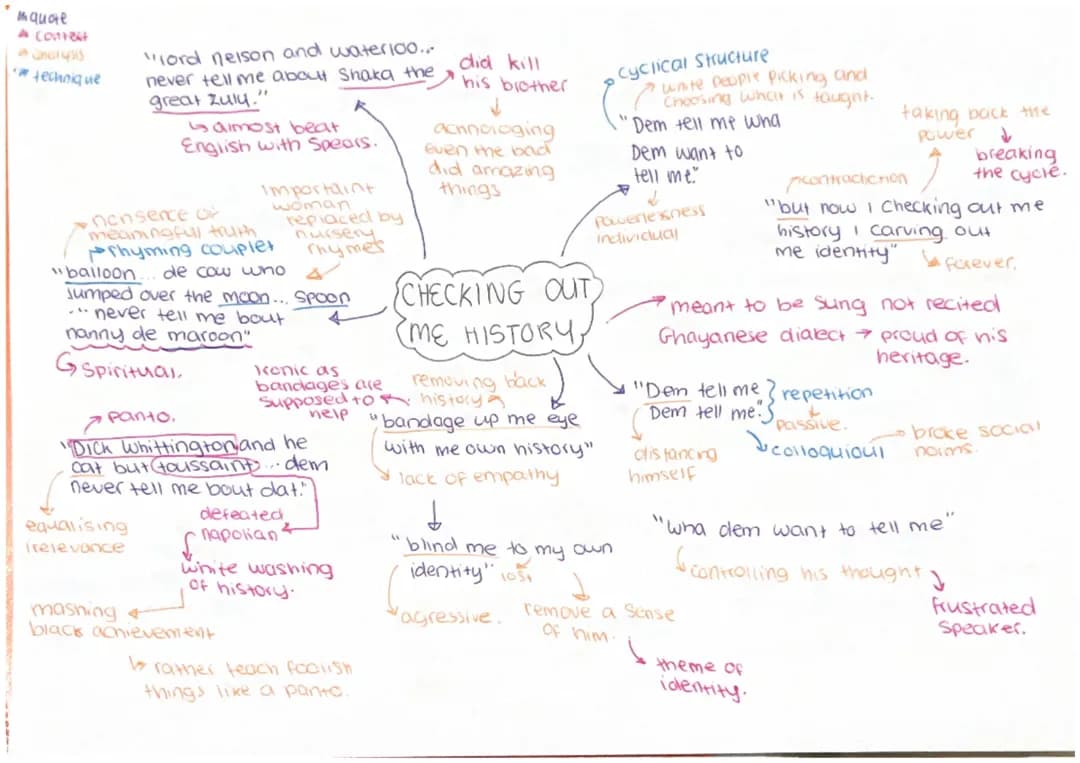 quote
context
analysis
technique
"lord nelson and waterloo...
never tell me about Shaka the
great zulu."
almost beat
English with Spears.
did kill
his brother
acnnologing
even the bad
did amazing
things
cyclical structure
white people picking and
choosing what is taught.
"Dem tell me wha
Dem want to
tell me."
Powerlessness
individual
taking back the
power
breaking
the cycle.
contradiction
"but now I checking out me
history I carving out
me identity"
forever.
nonsence or
meaningful truth
rhyming couplet
importaint
woman
replaced by
nursery
rhymes
"balloon... de cow who
Jumped over the moon... spoon
... never tell me bout
nanny de maroon"
Spiritual.
CHECKING OUT
ME HISTORY
meant to be sung not recited
Ghayanese dialect → proud of his
heritage.
Iconic as
bandages are
supposed to
help
removing back
history
"bandage up me eye
with me own history"
lack of empathy
"Dem tell me
Dem tell me."
repetition
passive.
colloquioul
broke social
norms.
distancing
himself
panto.
"Dick Whittington and he
cat but toussaint... dem
never tell me bout dat."
equalising
irelevance
defeated
napolian
white washing
of history.
mashing
black achievement
rather teach foolish
things like a panto.
"blind me to my own
identity"
lost
agressive.
remove a sense
of him.
theme of
identity.
"wha dem want to tell me"
controlling his thought
frustrated
speaker.